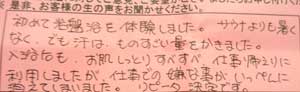 是非、お客様の生の声をお聞かせください。
初めて岩盤浴を体験しました。サウナよりも暑く
なく、でも汗はものすごい量をかきました。
入浴なども、お肌しっとりすべすべ、仕事帰りに
利用しましたが、仕事での嫌な事がいっぺんに
消えてしまいました。リピータ決定です。